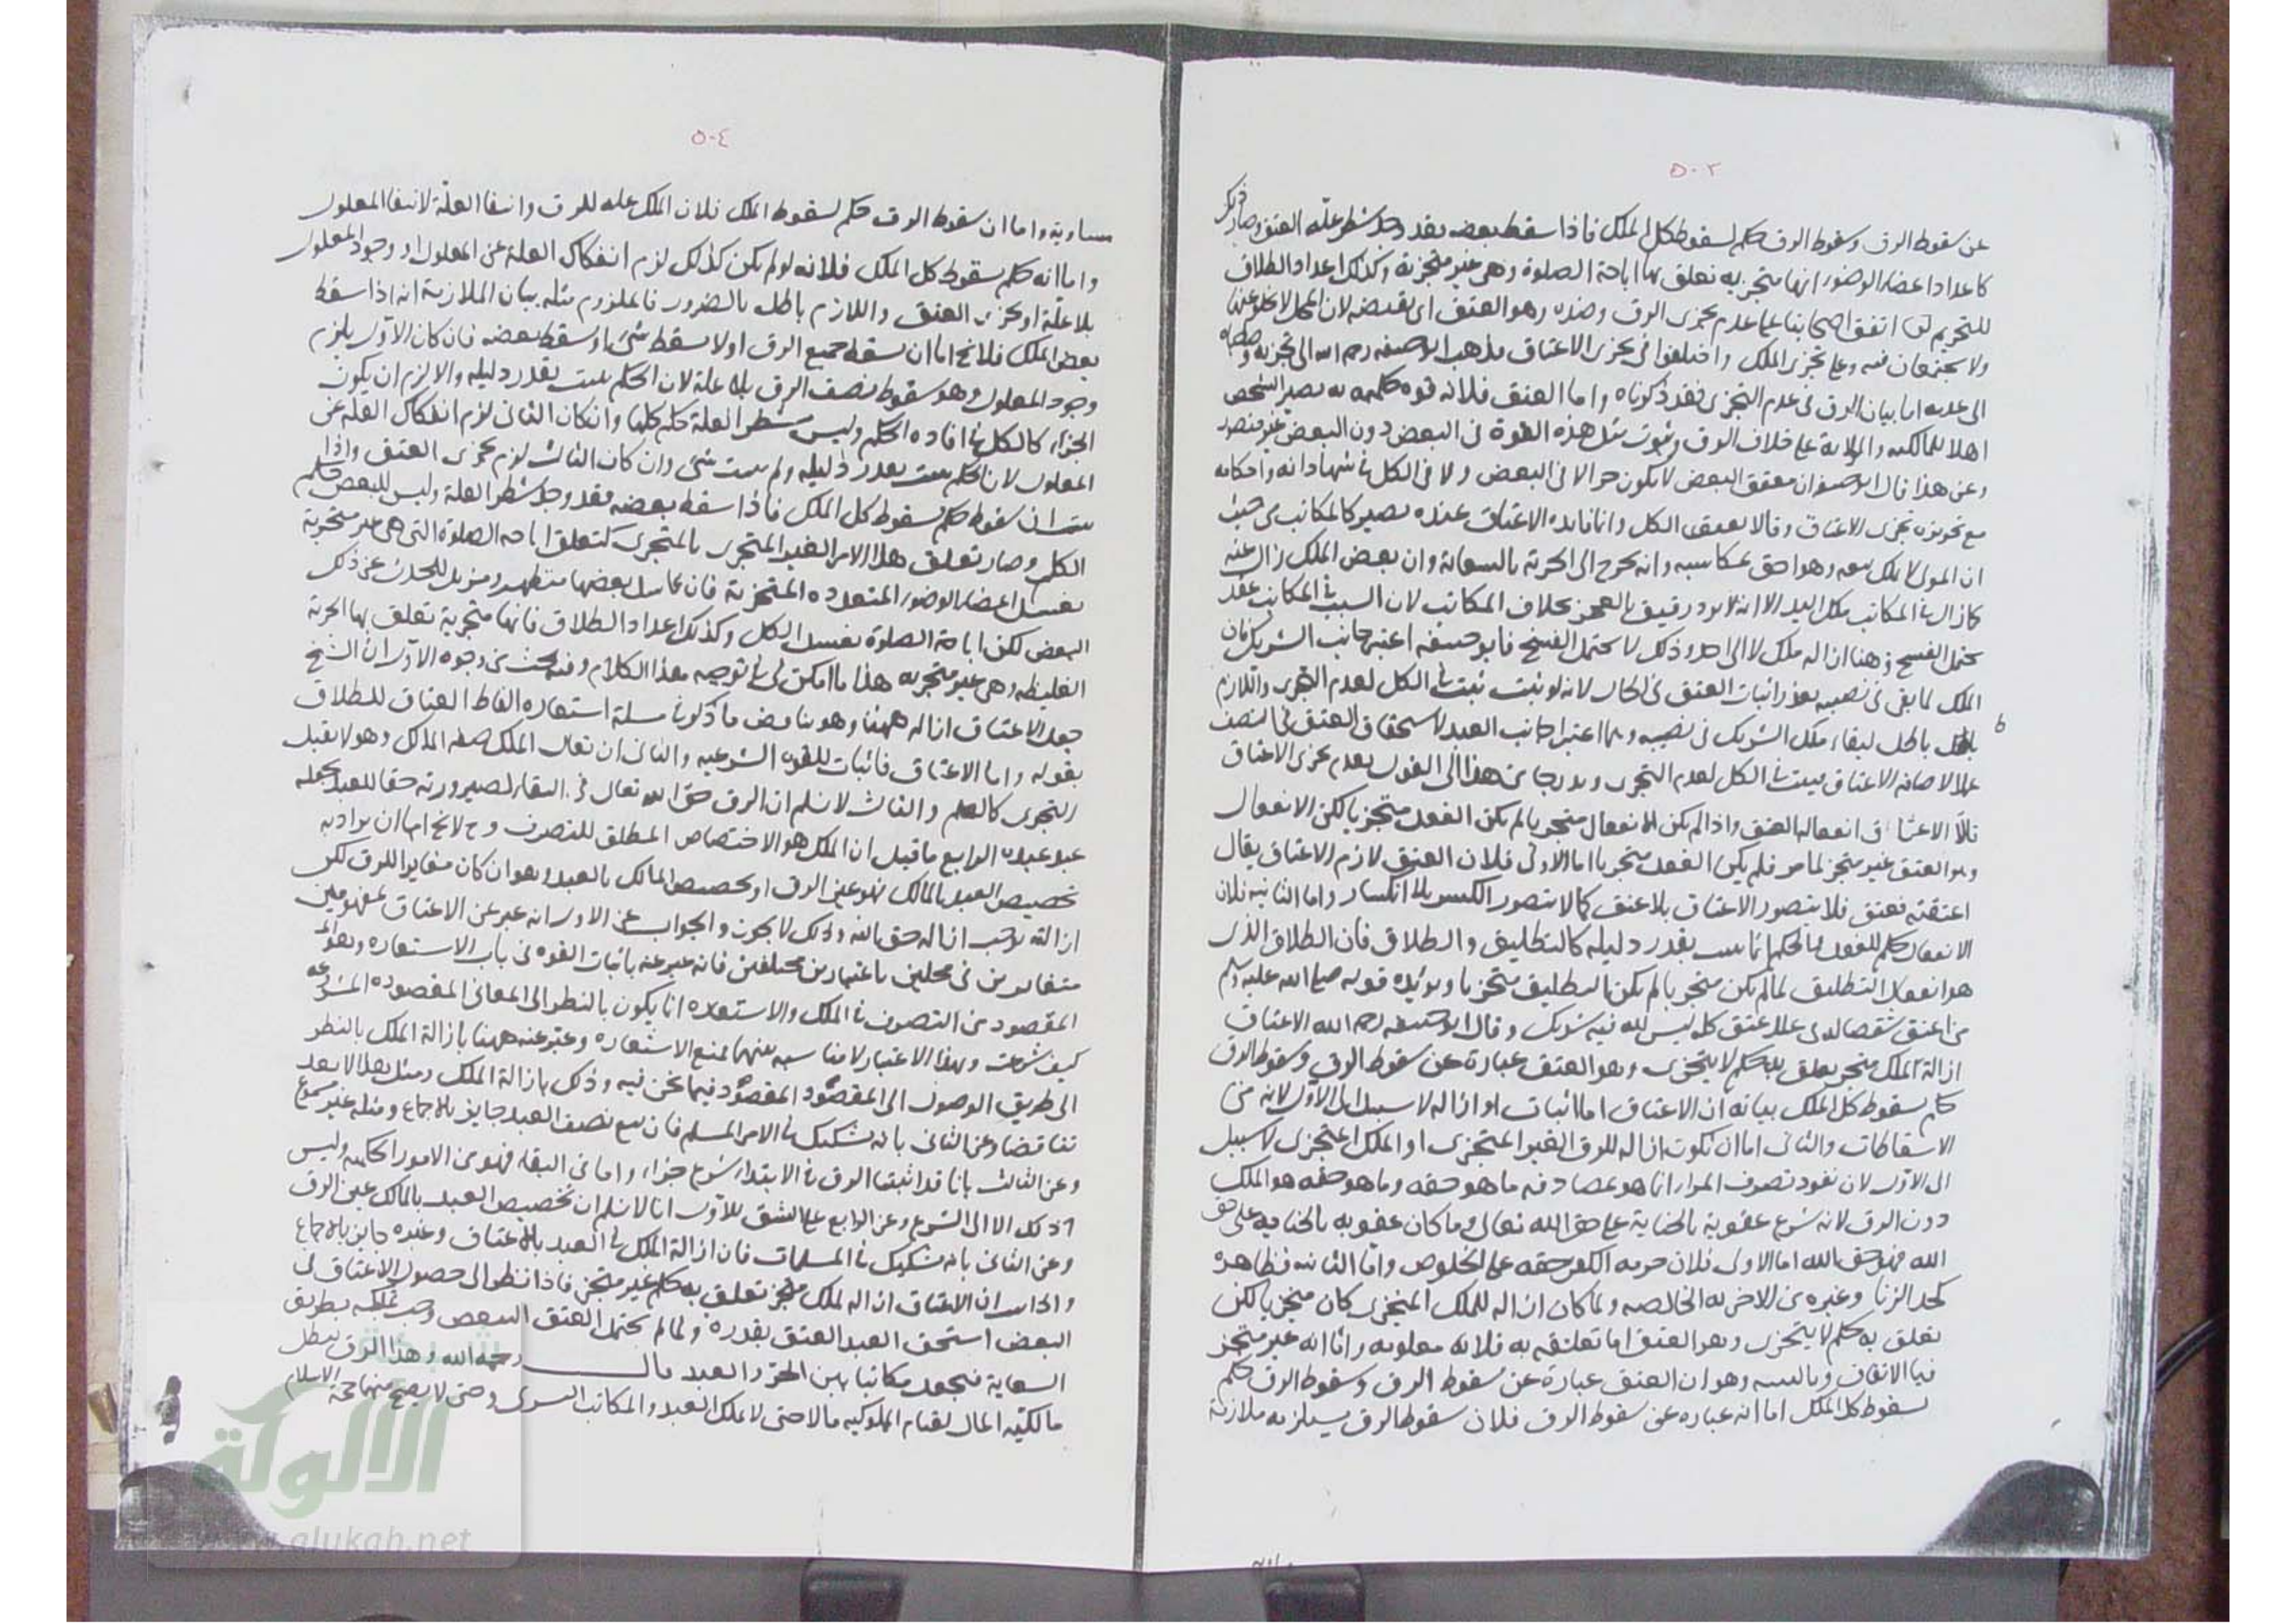 ٥٠٣
عن سقوط الرق وسقوط الرق حكم لسقوط كل الملك فاذا سقط بعضه فقد وجد شطر علة العتق وصار ذلك
كاعداد اعضاء الوضوء انها متجزية تعلق بها اباحة الصلوة وهى غير متجزية وكذلك اعداد الطلاق
للتحريم اتفق اصحابنا على عدم تجزى الرق وضده وهو العتق اى نقيضه لان المحل لا يخلو عنهما
ولا يجتمعان فيه وعلى تجزى الملك واختلفوا فى تجزى الاعتاق فذهب ابو حنيفه رحمه الله الى تجزيه وصاحباه
الى عدمه اما بيان الرق فى عدم التجزى فقد ذكرناه واما العتق فلانه قوة حكمية به يصير الشخص
اهلا للمالكيه والولاية على خلاف الرق وثبوت مثل هذه القوة فى البعض دون البعض غير متصور
وعن هذا قال ابو حنيفة ان معتق البعض لا يكون حرا لا فى البعض ولا فى الكل فى شهاداته واحكامه
مع تجويزه تجزى الاعتاق وقالا يعتق الكل وانما فائدة الاعتاق عنده يصير كالمكاتب من حيث
ان المولى لا يملك بيعه وهو احق بمكاسبه وانه يخرج الى الحرية بالسعاية وان بعض الملك زال عنه
كما زال فى المكاتب ملك اليد الا انه لا يرد رقيق بالعجز بخلاف المكاتب لان السبب فى المكاتب عقد
يحتمل الفسخ وهنا ازالة ملك لا الى احد وذلك لا يحتمل الفسخ فابو حنيفه اعتبر جانب الشريك فان
الملك لما بقى فى نصيبه تعذر اثبات العتق فى الحال لانه لو ثبت ثبت فى الكل لعدم التجزى واللازم
باطل لبقاء ملك الشريك فى نصيبه وهما اعتبرا جانب العبد لاستحقاق العتق فى النصف
الاعتاق يثبت فى الكل لعدم التجزى هذا الى القول بعدم تجزى الاعتاق
الاعتاق انفعاله العتق واذا لم يكن الانفعال متجزيا لم يكن الفعل متجزيا لكن الانفعال
وهو العتق غير متجز لما مر فلم يكن الفعل متجزيا اما الاولى فلان العتق لازم الاعتاق يقال
اعتقته فعتق فلا يتصور الاعتاق بلا عتق كما لا يتصور الكسر بلا انكسار واما الثانيه فلان
الانفعال حكم للفعل والحكم انما يثبت بقدر دليله كالتطليق والطلاق فان الطلاق الذى
هو انفعال التطليق لما لم يكن متجزيا لم يكن التطليق متجزيا ويؤيده قوله صلى الله عليه وسلم
من اعتق شقصا له فى عبد عتق كله ليس لله فيه شريك وقال ابو حنيفه رحمه الله الاعتاق
ازالة لملك متجز تعلق به حكم لا يتجزى وهو العتق عبارة عن سقوط الرق وسقوط الرق
حكم سقوط كل الملك بيانه ان الاعتاق اما اثبات او ازاله لا سبيل الى الاول لانه من
الاسقاطات والثانى اما ان يكون ازالة للرق الغير المتجزى او الملك المتجزى لا سبيل
الى الاول لان نفوذ تصرف المرء انما هو بمصادفه ما هو حقه وما هو حقه هو الملك
دون الرق لانه شرع عقوبة بالجناية على حق الله تعالى وما كان عقوبه بالجنايه على حق
الله فهو حق الله اما الاولى فلان حرمه الكفر حقه على الخلوص واما الثانيه فظاهرة
كحد الزنا وغيره من الاجزيه الخالصه ولما كان ازالة للملك المتجزى كان متجزيا لكن
تعلق به حكم لا يتجزى وهو العتق اما تعلقه به فلانه معلوله واما انه غير متجز
فبالاتفاق وهو ان العتق عبارة عن سقوط الرق وسقوط الرق حكم
لسقوط كل الملك اما انه عباره عن سقوط الرق فلان سقوط الرق يستلزمه ملازمة
٥٠٤
مساوية واما ان سقوط الرق حكم لسقوط الملك فلان الملك علة للرق وانتفاء العلة لانتفاء المعلول
واما انه حكم سقوط كل الملك فلانه لو لم يكن كذلك لزم انفكاك العلة عن المعلول او وجود المعلول
بلا علة او تجزى العتق واللازم باطل بالضرورة فالملزوم مثله بيان الملازمة انه اذا سقط
بعض الملك فلا يخ اما ان يسقط جميع الرق او لا يسقط شئ او سقط بعضه فان كان الاول يلزم
وجود المعلول وهو سقوط نصف الرق بلا علة لان الحكم يثبت بقدر دليله والا لزم ان يكون
الجزء كالكل فى افادة الحكم وليس شطر العلة حكم كلها وان كان الثانى لزم انفكاك العلة عن
المعلول لان الحكم يثبت بقدر دليله ولم يثبت شئ وان كان الثالث لزم تجزى العتق واذا
ثبت ان سقوط حكم لسقوط كل الملك فاذا سقط بعضه فقد وجد شطر العلة وليس للبعض حكم
الكل وصار تعلق هذا الامر الغير المتجزى بالمتجزى كتعلق اباحة الصلوة التى هى غير متجزية
بغسل اعضاء الوضوء المتعدده المتجزية فان غاسل بعضها متطهر ومزيل للحدث عن ذلك
البعض لكن اباحة الصلوة بغسل الكل وكذلك اعداد الطلاق فانها متجزية تعلق بها الحرمة
الغليظه وهى غير متجزيه هذا ما امكن لى فى توجيه هذا الكلام وفيه بحث من وجوه الاول ان الشيخ
جعل الاعتاق ازالة ههنا وهو يناقض ما ذكره فى مسئلة استعاره الفاظ العتاق للطلاق
بقوله واما الاعتاق فاثبات للقوه الشرعيه والثانى ان يقال الملك صفة المالك وهو لا يقبل
التجزى كالعلم والثالث لا نسلم ان الرق حق الله تعالى فى البقاء لصيرورته حقا للعبد بجعله
الرابع ما قيل ان الملك هو الاختصاص المطلق للتصرف وح لا يخ اما ان يراد به
تخصيص العبد بالمالك فهو عين الرق او تخصيص المالك بالعبد وهو ان كان مغايرا للرق لكن
ازالته توجب ازاله حق الله وذلك لا يجوز والجواب عن الاول انه عبر عن الاعتاق بمفهومين
متغايرين فى محلين باعتبارين مختلفين فانه عبر عنه باثبات القوه فى باب الاستعاره وهو
المقصود من التصرف فى الملك والاستعاره انما يكون بالنظر الى المعانى المقصودة المشروعه
كيف شرعت وبهذا الاعتبار لا مناسبه بينهما تمنع الاستعاره وعبر عنه ههنا بازالة الملك بالنظر
الى طريق الوصول الى المقصود المقصود فيما نحن فيه وذلك بازالة الملك ومثل هذا لا يعد
تناقضا وعن الثانى بانه تشكيك فى الامر المسلم فان بيع نصف العبد جايز بالاجماع ومثله غير مسموع
وعن الثالث بانا قد اثبتنا الرق فى الابتداء شرع جزاء واما فى البقاء فهو من الامور الحكميه وليس
ذلك الا الى الشرع وعن الرابع على الشق الاول انا لا نسلم ان تخصيص العبد بالمالك عين الرق
وعن الثانى بانه تشكيك فى المسلمات فان ازالة الملك فى العبد بالاعتاق وغيره جايز بالاجماع
والحاصل ان الاعتاق ازاله لملك متجز تعلق به حكم غير متجز فاذا نظر الى حصول الاعتاق فى
البعض استحق العبد العتق بقدره ولما لم يحتمل العتق البعض وجب تكميله بطريق
السعاية فيجعل مكاتبا بين الحر والعبد قال رحمه الله وهذا الرق يبطل
مالكية المال لقيام المملوكيه مالا حتى لا يملك العبد والمكاتب التسرى وحتى لا يصح منهما حجة الاسلام
الألوكة
www.alukah.net